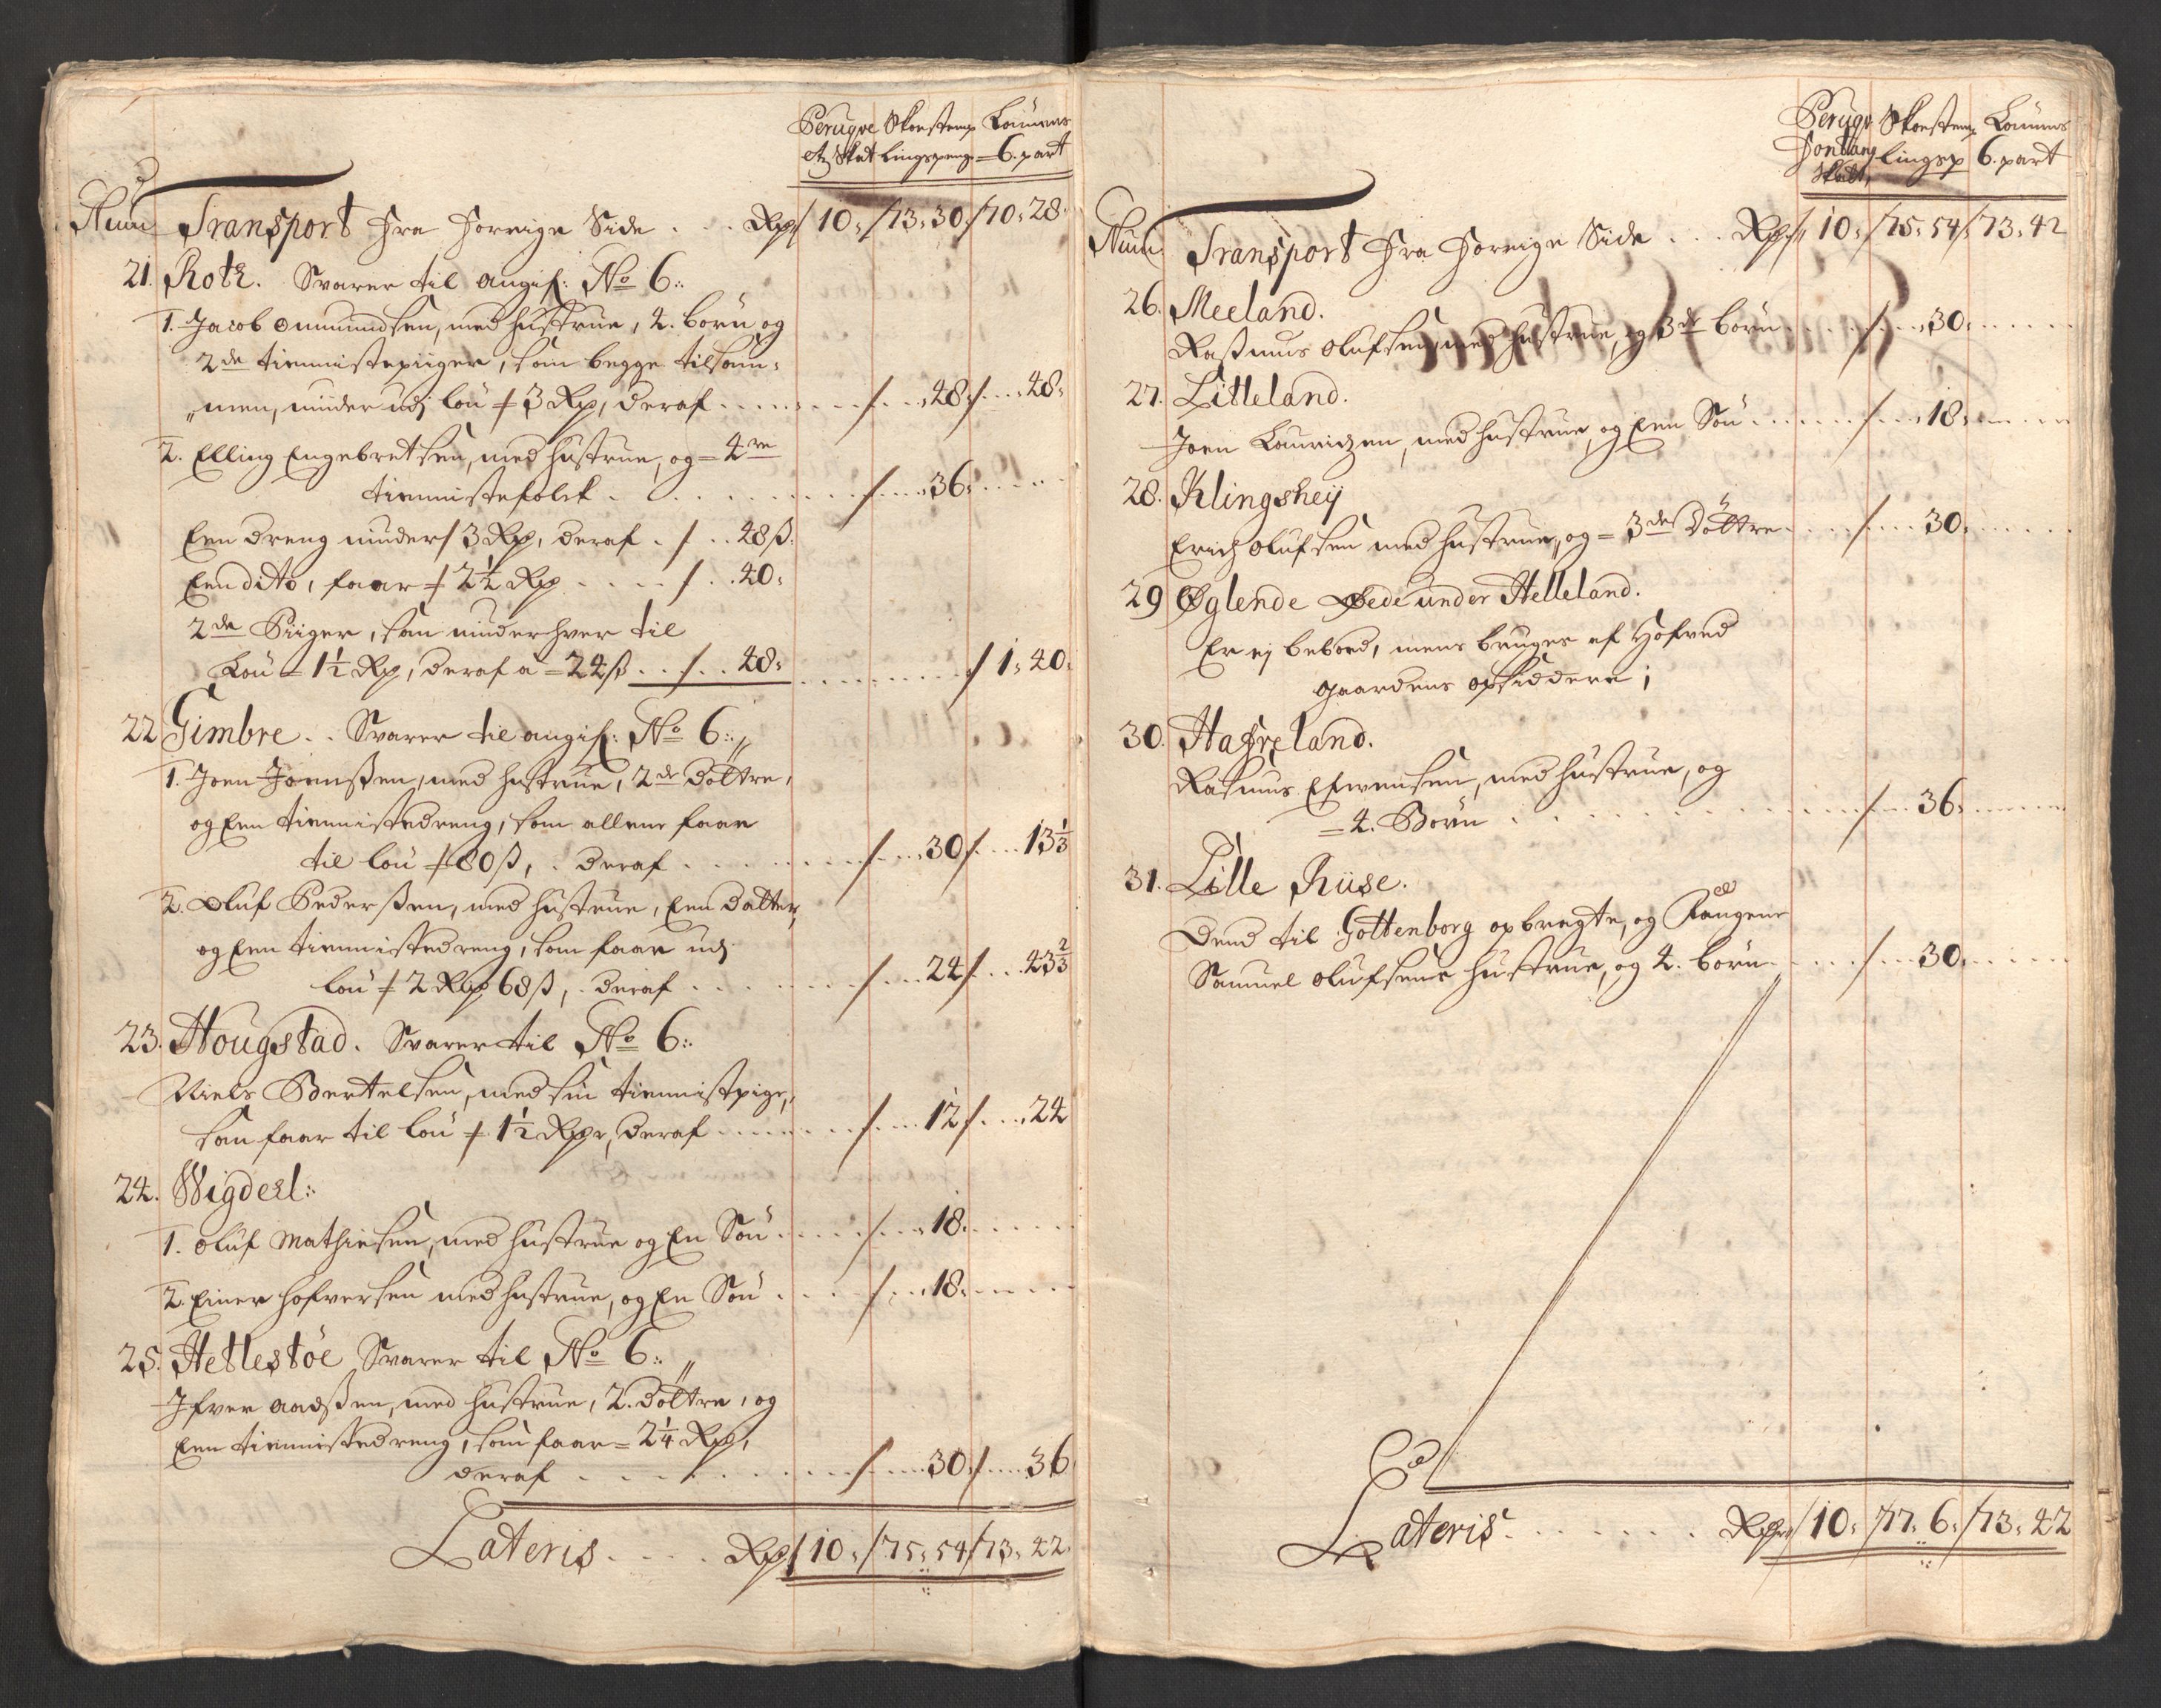 Perugve Skorsteng Lönnens
etz Skat lingspeng = 6. part
Num Transport Fra Forrige Side . . . Rp/ 10: /73: 30: /70: 28:
21. Rott. Svarer til angif: No 6:
1. Jacob Ommundsen, med hustrue, 4. börn og
2de tienniste piiger, som begge tilsam:
men, nÿder udj lön 3 Rp, deraf . . . 48: / . . . 48:
2. Elling Engebretsen, med hustrue, og = 4re
tiennistefolck . . . 36:
Een dreng nÿder / 3 Rp, deraf . / . . 48 ß.
Een dito, faar 2½ Rp . . . / . . 40:
2de Piiger, som nÿder hver til
Lön = 1½ Rp, deraf a = 24 ß . . / . . 48: . . . / 1: 40:
22 Gimbre . . Svarer til angif: No 6:
1. Joen Joensßen, med hustrue, 2de döttre,
og Een tiennistedreng, som allene faar
til lön 80 ß, . deraf . . . 30 / . . . 13⅓
2. Oluf Pedersßen, med hustrue, Een datter,
og Een tiennistedreng, som faar udj
lön 2 Rp 68 ß, . deraf . . . 24 / . . . 43⅔
23. Hougstad. Svarer til No 6:
Niels Bertelsen, med sin tiennistpige,
som faar til lön 1½ Rpr, deraf . . . 12 / . . . 24
24. Wigdeel:
1. Oluf Mathiesen, med hustrue og En Sön . . . 18.
2. Einer Hofversen med hustrue, og En Sön . . . 18.
25. Hetlestöe Svarer til No 6:
Ifver Aadsßen, med hustrue, 2. döttre, og
Een tiennistedreng, som faar = 2¼ Rp,
deraf . . . 30 / . . . 36
Lateris . . . Rp/ 10: /75: 54 /73: 42.
Perugv Skorsteng Lönnens
Fontang lingsp 6. part
Skatt,
Num. Transport Fra Forrige Side . . . Rp. 10: /75: 54 /73: 42
26. Meeland.
Raßmus Olufsen, med hustrue, og 3de börn . . . 30:
27. Litleland.
Joen Lauridzen, med hustrue, og Een Sön . . . 18:
28. Klingsheÿ
Erich Olufsen med hustrue, og = 3de Döttre . . . 30:
29 Øglende Øede under Helleland.
Er ej beboed, mens bruges af Hofved
gaardens opsiddere;
30. Hafreland.
Rasmus Efwensen, med hustrue, og
= 4. Börn . . . 36:
31. Lille Riise.
Dend til Gottenborg opbragte, og Fangene
Samuel Olufsens hustrue, og 4. börn . . . 30.
Lateris . . . Rpr/ 10: /77: 6: /73: 42